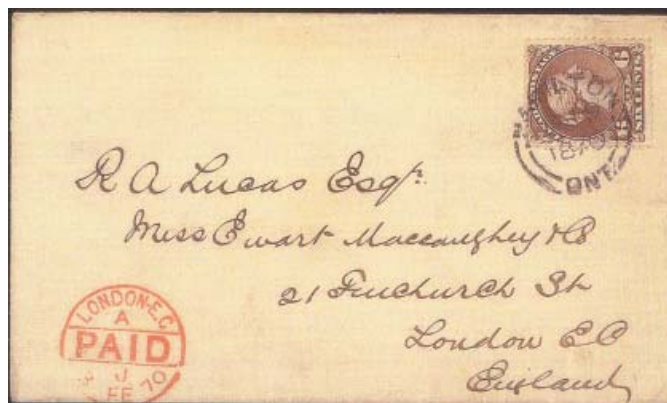 SIX CENTS
1870
ONT.
R A Lucas Esqr.
Miss Ewart Maccaughey & Co
21 Finchurch St
London E C
England
LONDON-E.C
A
PAID
FE 70